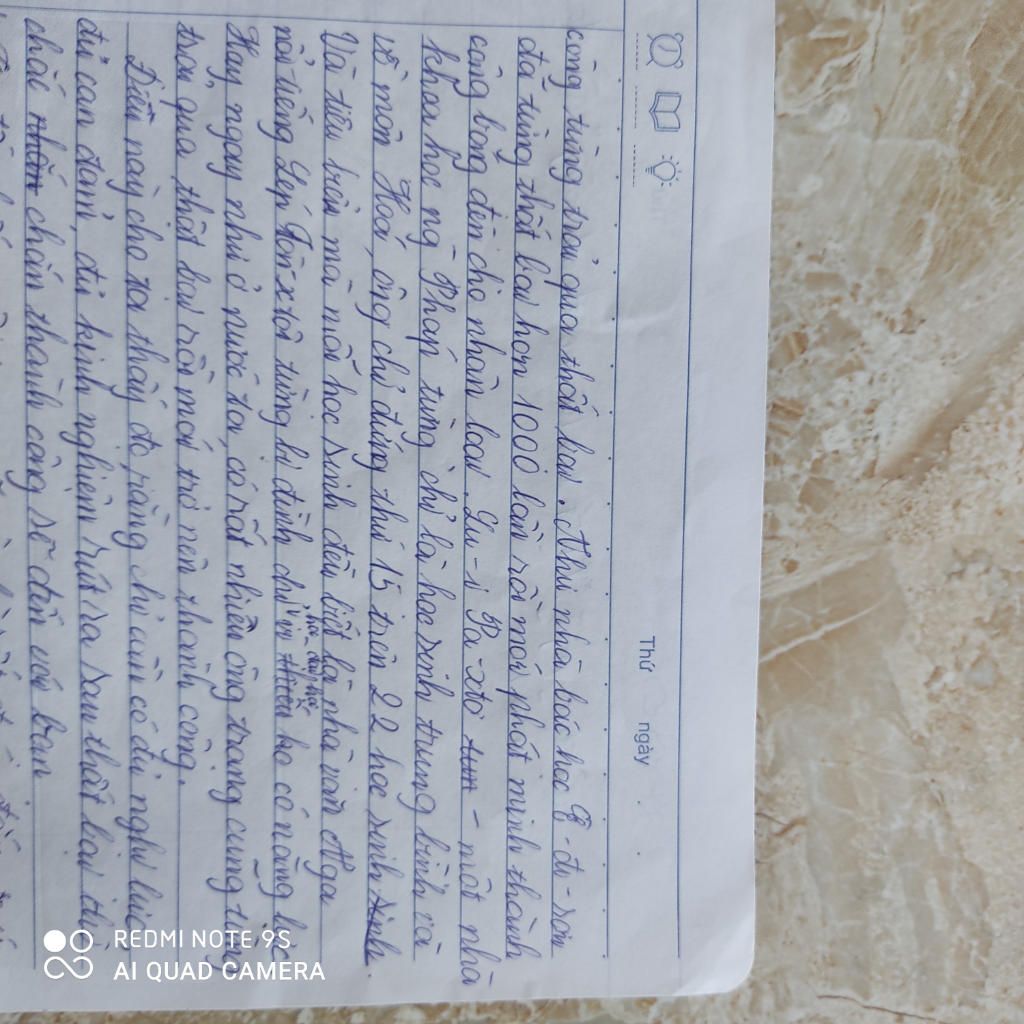 Thứ ngày
cũng từng trải qua thất bại. Như nhà bác học Ê-đi-xơn
đã từng thất bại hơn 1000 lần rồi mới phát minh thành
công bóng đèn cho nhân loại. Lu-i Pa-xtơ - một nhà
khoa học ng Pháp từng chỉ là học sinh trung bình và
về môn Hoá, ông chỉ đứng thứ 15 trên 22 học sinh sinh.
Và tiêu biểu mà mỗi học sinh đều biết là nhà văn Nga
nổi tiếng Lep Tôn-xtôi từng bị đình chỉ vì ko có năng lực
Hay ngay như ở nước ta, có rất nhiều công trạng cũng từng
trải qua thất bại rồi mới trở nên thành công.
Điều này cho ta thấy đó, rằng chỉ cần có đủ nghị lực
đủ can đảm, đủ kinh nghiệm rút ra sau thất bại thì
chắc chắn thành công sẽ đến với bạn
REDMI NOTE 9S
AI QUAD CAMERA